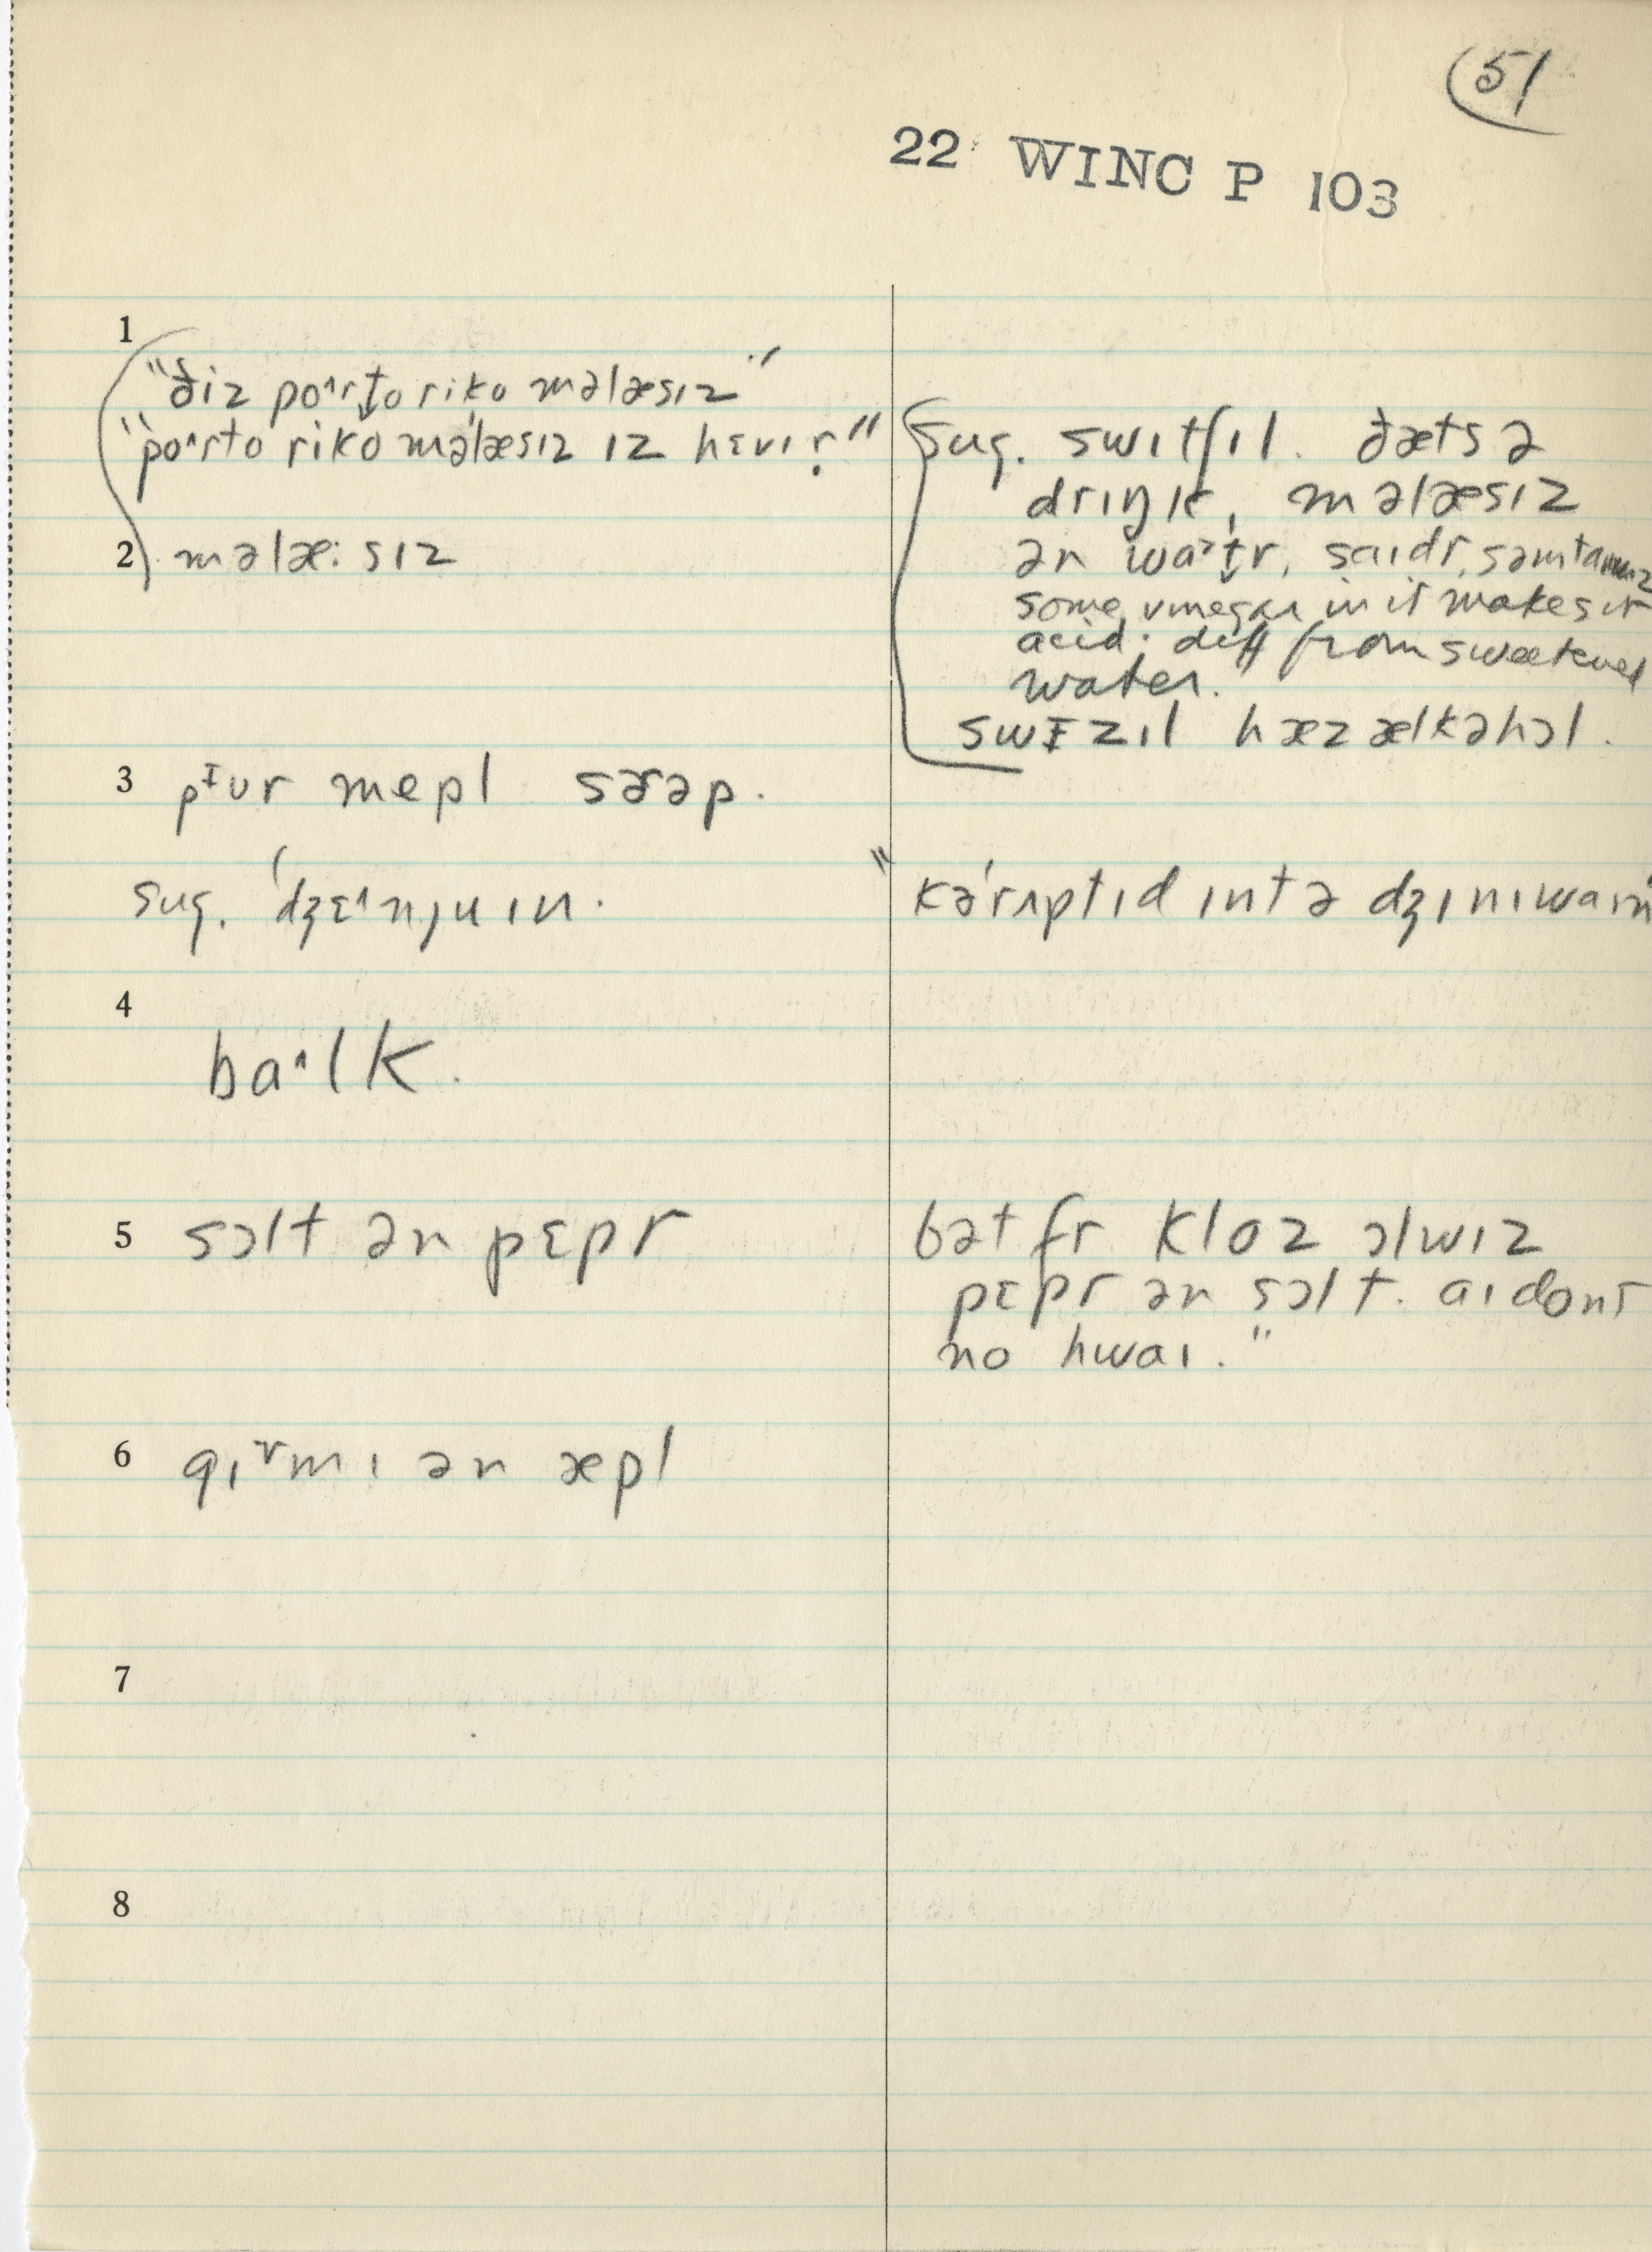 51
22 WINC P 103
1
"ðiz poˑ˄rt̬o riko məlæsɪz"
"poˑ˄rto riko məlæsɪz ɪz hɛvɪr̩"
2 məlæ:sɪz
Sug. swɪtʃɪl. ðæts ə
drɪŋk, məlæsɪz
ən wa˃t̬r, saɪdr, səmtaɪmz
some vinegar in it makes it
acid: diff from sweetened
water.
swɪzɪl hæz ælkəhɔl.
3 pᶦur mepl sɚəp.
sug. 'dʒɛ˄njuɪn.
"kərʌptɪd ɪntə dʒɪnɪwaɪn
4
baˑ˄lk.
5 sɔlt ən pɛpr
bət fr kloz ɔlwɪz
pɛpr ən sɔlt. aɪ dont
no hwaɪ."
6 ən æpl
7
8